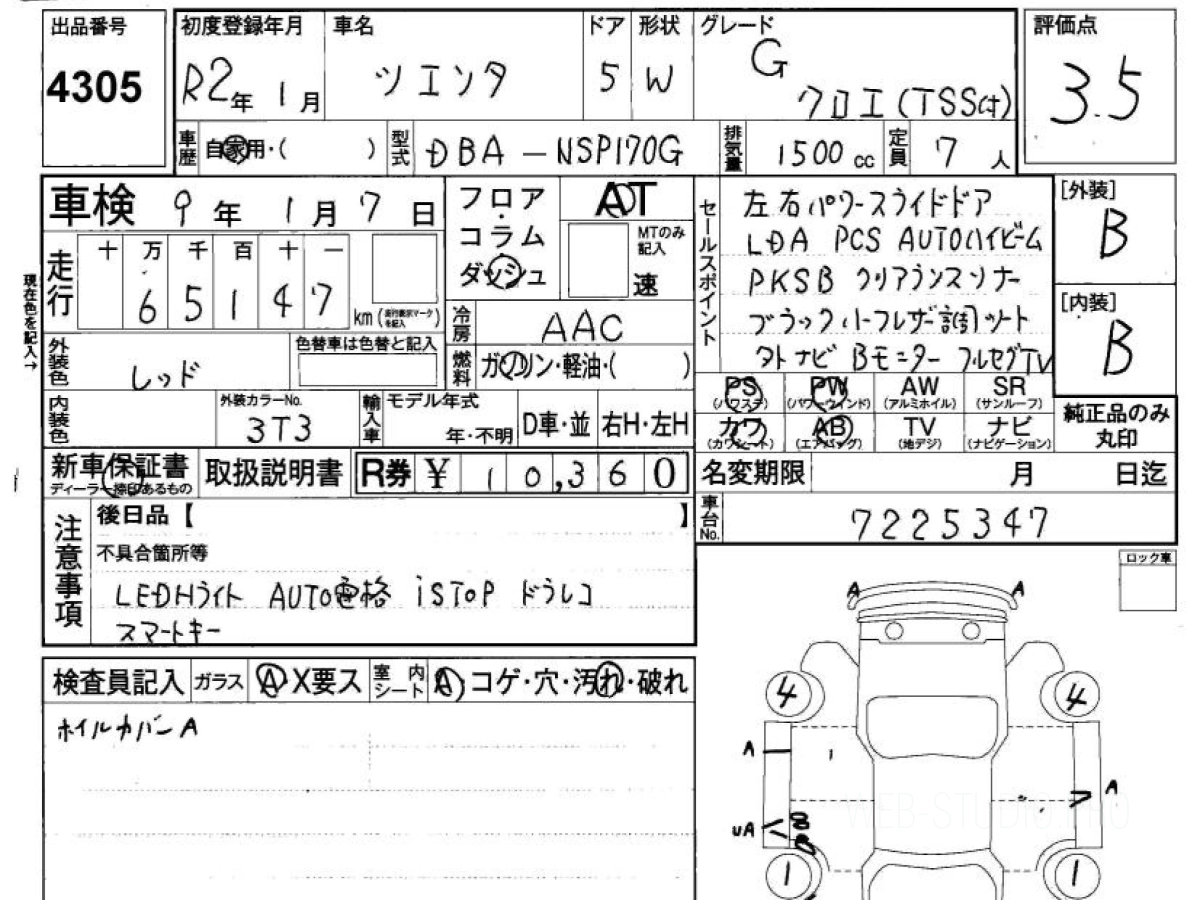 出品番号
4305
初度登録年月
R2年 1月
車名
ツエンタ
ドア
5
形状
W
グレード
G
クロエ(TSS付)
評価点
3.5
車歴 自家用・( )
型式 DBA-NSP170G
排気量 1500cc
定員 7人
車検 9年 1月 7日
走行 十 万 千 百 十 一
6 5 1 4 7
km(走行表示マークを記入)
現在色を記入→
外装色 レッド
色替車は色替と記入
内装色
外装カラーNo.
3T3
輸入車
モデル年式
年・不明
D車・並
右H・左H
フロア・コラム
ダッシュ
AT
MTのみ記入
速
冷房 AAC
燃料 ガソリン・軽油・( )
セールスポイント
左右パワースライドドア
LDA PCS AUTOハイビーム
PKSB クリアランスソナー
ブラックハーフレザー調シート
アトナビ Bモニター フルセグTV
[外装]
B
[内装]
B
PS
(パワステ)
PW
(パワーウインド)
AW
(アルミホイル)
SR
(サンルーフ)
カワ
(カワシート)
AB
(エアバッグ)
TV
(地デジ)
ナビ
(ナビゲーション)
純正品のみ
丸印
新車保証書
ディーラー捺印あるもの
取扱説明書
R券 ¥ 10,360
名変期限 月 日迄
車台No. 7225347
注意事項
後日品【 】
不具合箇所等
LEDHライト AUTO電格 iSTOP ドラレコ
スマートキー
ロック車
検査員記入 ガラス A X要ス 室内シート A コゲ・穴・汚れ・破れ
ホイルカバーA
A A
4 4
A
A
UA
1 1
WEB-STUDIO.PRO